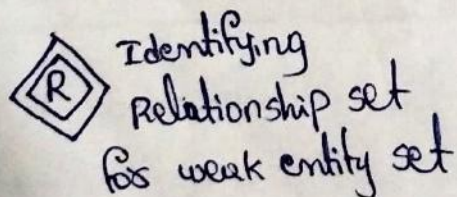 Identifying
R Relationship set
for weak entity set